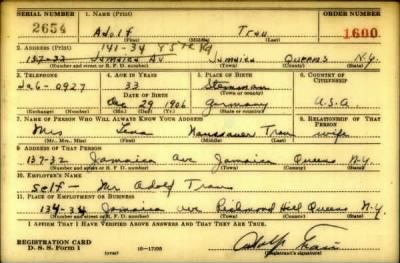 SERIAL NUMBER 1. Name (Print) ORDER NUMBER
2654 Adolf Trau 1600
(First) (Middle) (Last)
2. Address (Print)
141-34 85 Rd
137-32 Jamaica Av. Jamaica Queens N.Y.
(Number and street or R. F. D. number) (Town) (County) (State)
3. Telephone 4. Age in Years 5. Place of Birth 6. Country of Citizenship
Ja6-0927 33
Date of Birth (Town or county)
Dec 29 1906 Germany U.S.A.
(Exchange) (Number) (Mo.) (Day) (Yr.) (State or country)
7. Name of Person Who Will Always Know Your Address 8. Relationship of That Person
Mrs Lena Trau wife
(Mr., Mrs., Miss) (First) (Middle) (Last)
9. Address of That Person
137-32 Jamaica Ave Jamaica Queens N.Y.
(Number and street or R. F. D. number) (Town) (County) (State)
10. Employer's Name
Self - Mr Adolf Trau
11. Place of Employment or Business
134-34 Jamaica Ave Richmond Hill Queens N.Y.
(Number and street or R. F. D. number) (Town) (County) (State)
I Affirm That I Have Verified Above Answers and That They Are True.
REGISTRATION CARD
D. S. S. Form 1
Adolf Trau
(Registrant's signature)